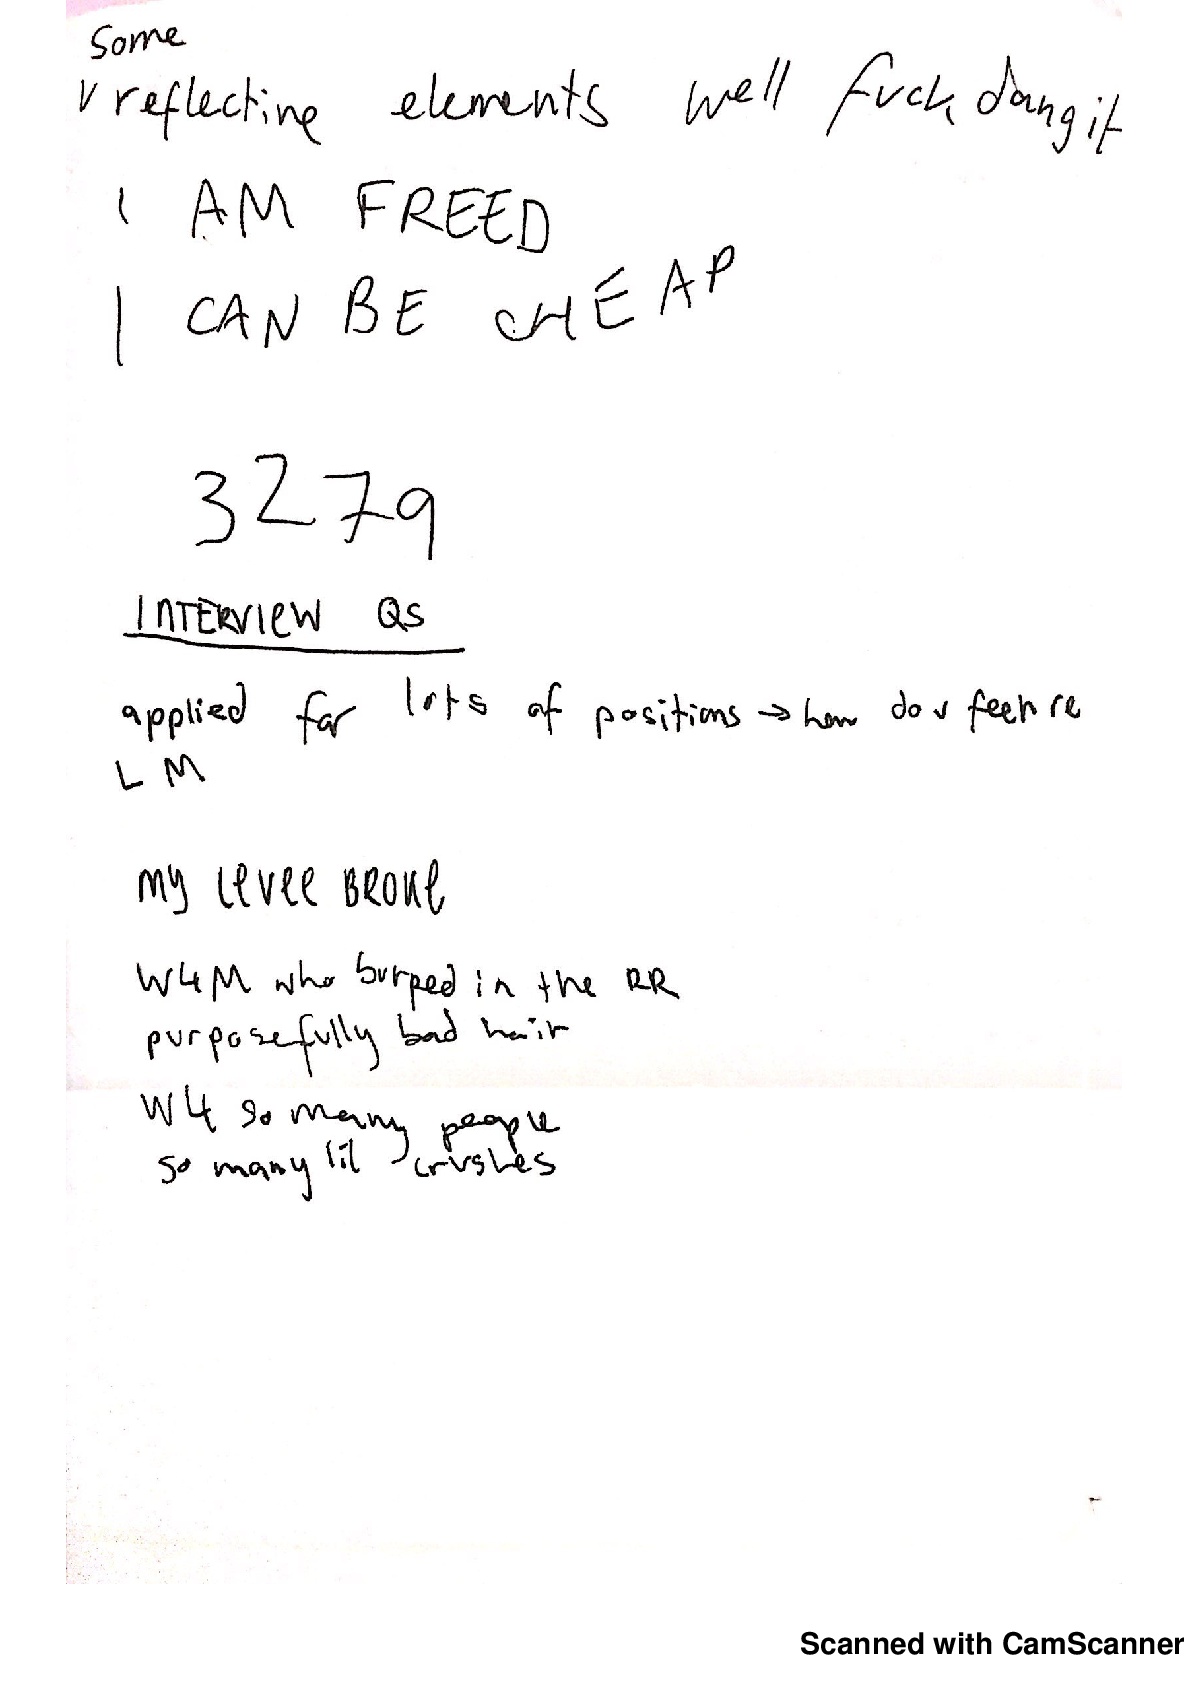 some
v reflecting elements well fuck dang it
I AM FREED
I CAN BE CHEAP
3279
INTERVIEW QS
applied for lots of positions → how do v feel re
LM
MY LEVEE BROKE
W4M who burped in the RR
purposefully bad hair
W4 so many people
so many lil crushes
Scanned with CamScanner